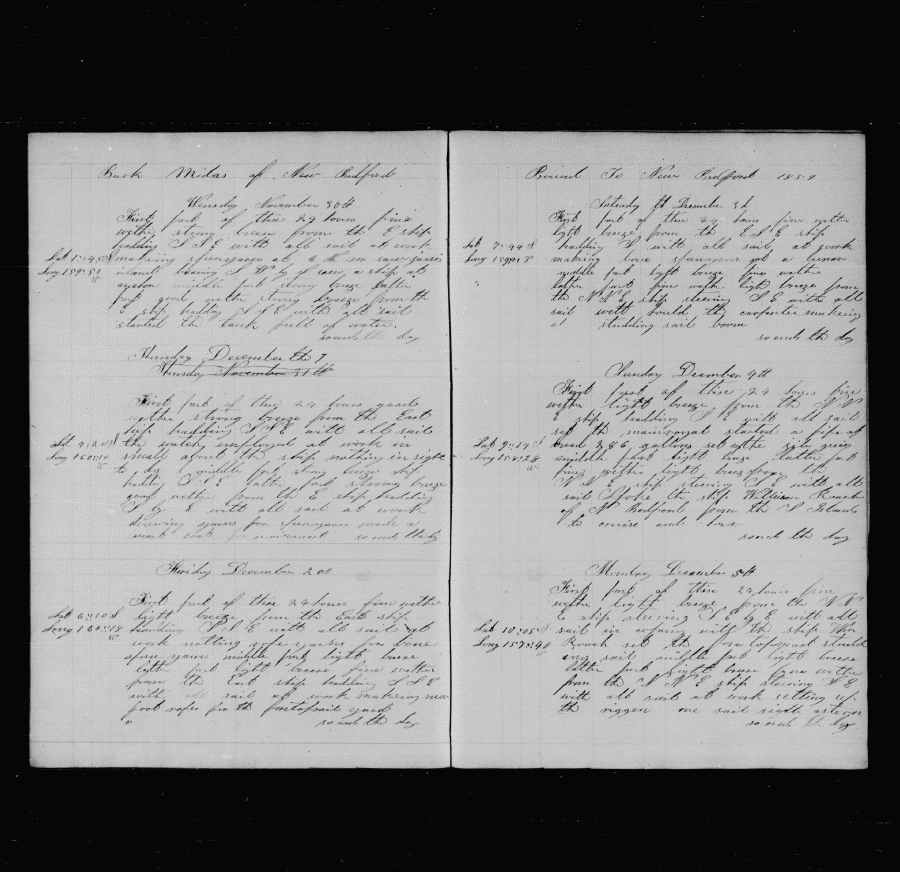 Bark Midas of New Bedford
Wensday November 30th
First part of these 24 hours fine
wether strong breeze from the E ship
heading S S E with all sail at work
Lat 1:45 S making spunyarn at 6 P m saw
Long 159:51 W islands bearing S W by S saw a ship at
middle part strong breeze latter
part good wether strong breeze from the
E ship heading S S E with all sail
started the back full of water.
so ends the day
Thursday December th 1
Thursday November 31th
First part of these 24 hours good
wether strong breeze from the East
ship heading S S E with all sail
Lat 4:20 S the watch employed at work in
Long 160:10 W small about the ship nothing in sight
to day middle part strong breeze ship
heading S S E latter part strong breeze
good wether from the E ship heading
S by E with all sail at work
drawing yarns for spunyarn made a
so ends the day
Friday December 2nd
First part of these 24 hours fine wether
Lat 6:10 S light breeze from the East ship
Long 160:18 W heading S S E with all sail at
work
spun yarn middle part light breeze
latter part light breeze fine wether
from the East ship heading S S E
with all sail at work making new
foot ropes for the foretopsail yard
so ends the day
Bound To New Bedford 1859
Saturday December 3d
First part of these 24 hours fine wether
light breeze from the E S E ship
Lat 7:44 S heading S with all sail at work
Long 159:18 making spunyarn got a lunar
middle part light breeze fine wether
latter part fine wether light breeze from
the N N E ship steering S E with all
sail the carpenter making
a studding sail boom
so ends the day
Sunday December 4th
First part of these 24 hours fine
wether light breeze from the N N
E ship heading S E with all sail
set the mainsail started a pipe of
Lat 9:14 S bread 286 gallons
Long 158:28 W middle part light breeze latter part
fine wether light breeze from the
N N E ship steering S E with all
sail Spoke the ship William Roach
of N Bedford from the S Islands
to cruise and home
so ends the day
Monday December 5th
First part of these 24 hours fine
wether light breeze from the N N
E ship steering S E by E with all
Lat 10:05 S sail in company with the ship Wm
Long 157:34 W Roach set the fore topmast studd
ing sail middle part light breeze
latter part light breeze fine wether
from the N N E ship steering S E
with all sail at work setting up
the riggen one sail sight astern
so ends the day